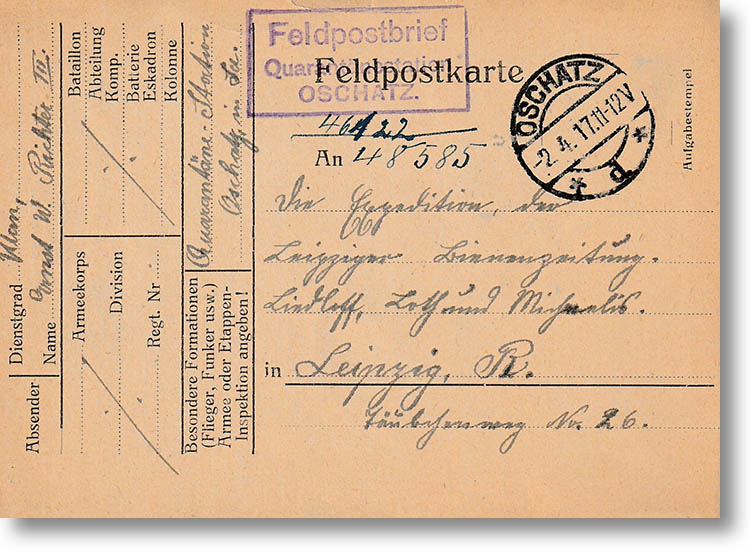 Feldpostbrief
Quarantänestation
OSCHATZ.
Feldpostkarte
OSCHATZ
-2.4.17.11-12V
* d *
Aufgabestempel
46122
An 48585
Die Expedition, der
Leipziger Bienenzeitung.
Liedloff, Loth und Michaelis.
in Leipzig, R.
Täubchenweg No. 26.
Absender
Dienstgrad Ulan,
Name Ernst W. Richter III.
Bataillon
Abteilung
Komp.
Batterie
Eskadron
Kolonne
Armeekorps
Division
Regt. Nr
Besondere Formationen
(Flieger, Funker usw.)
Armee oder Etappen-
Inspektion angeben!
Quarantäne-Station
Oschatz, in Sa.